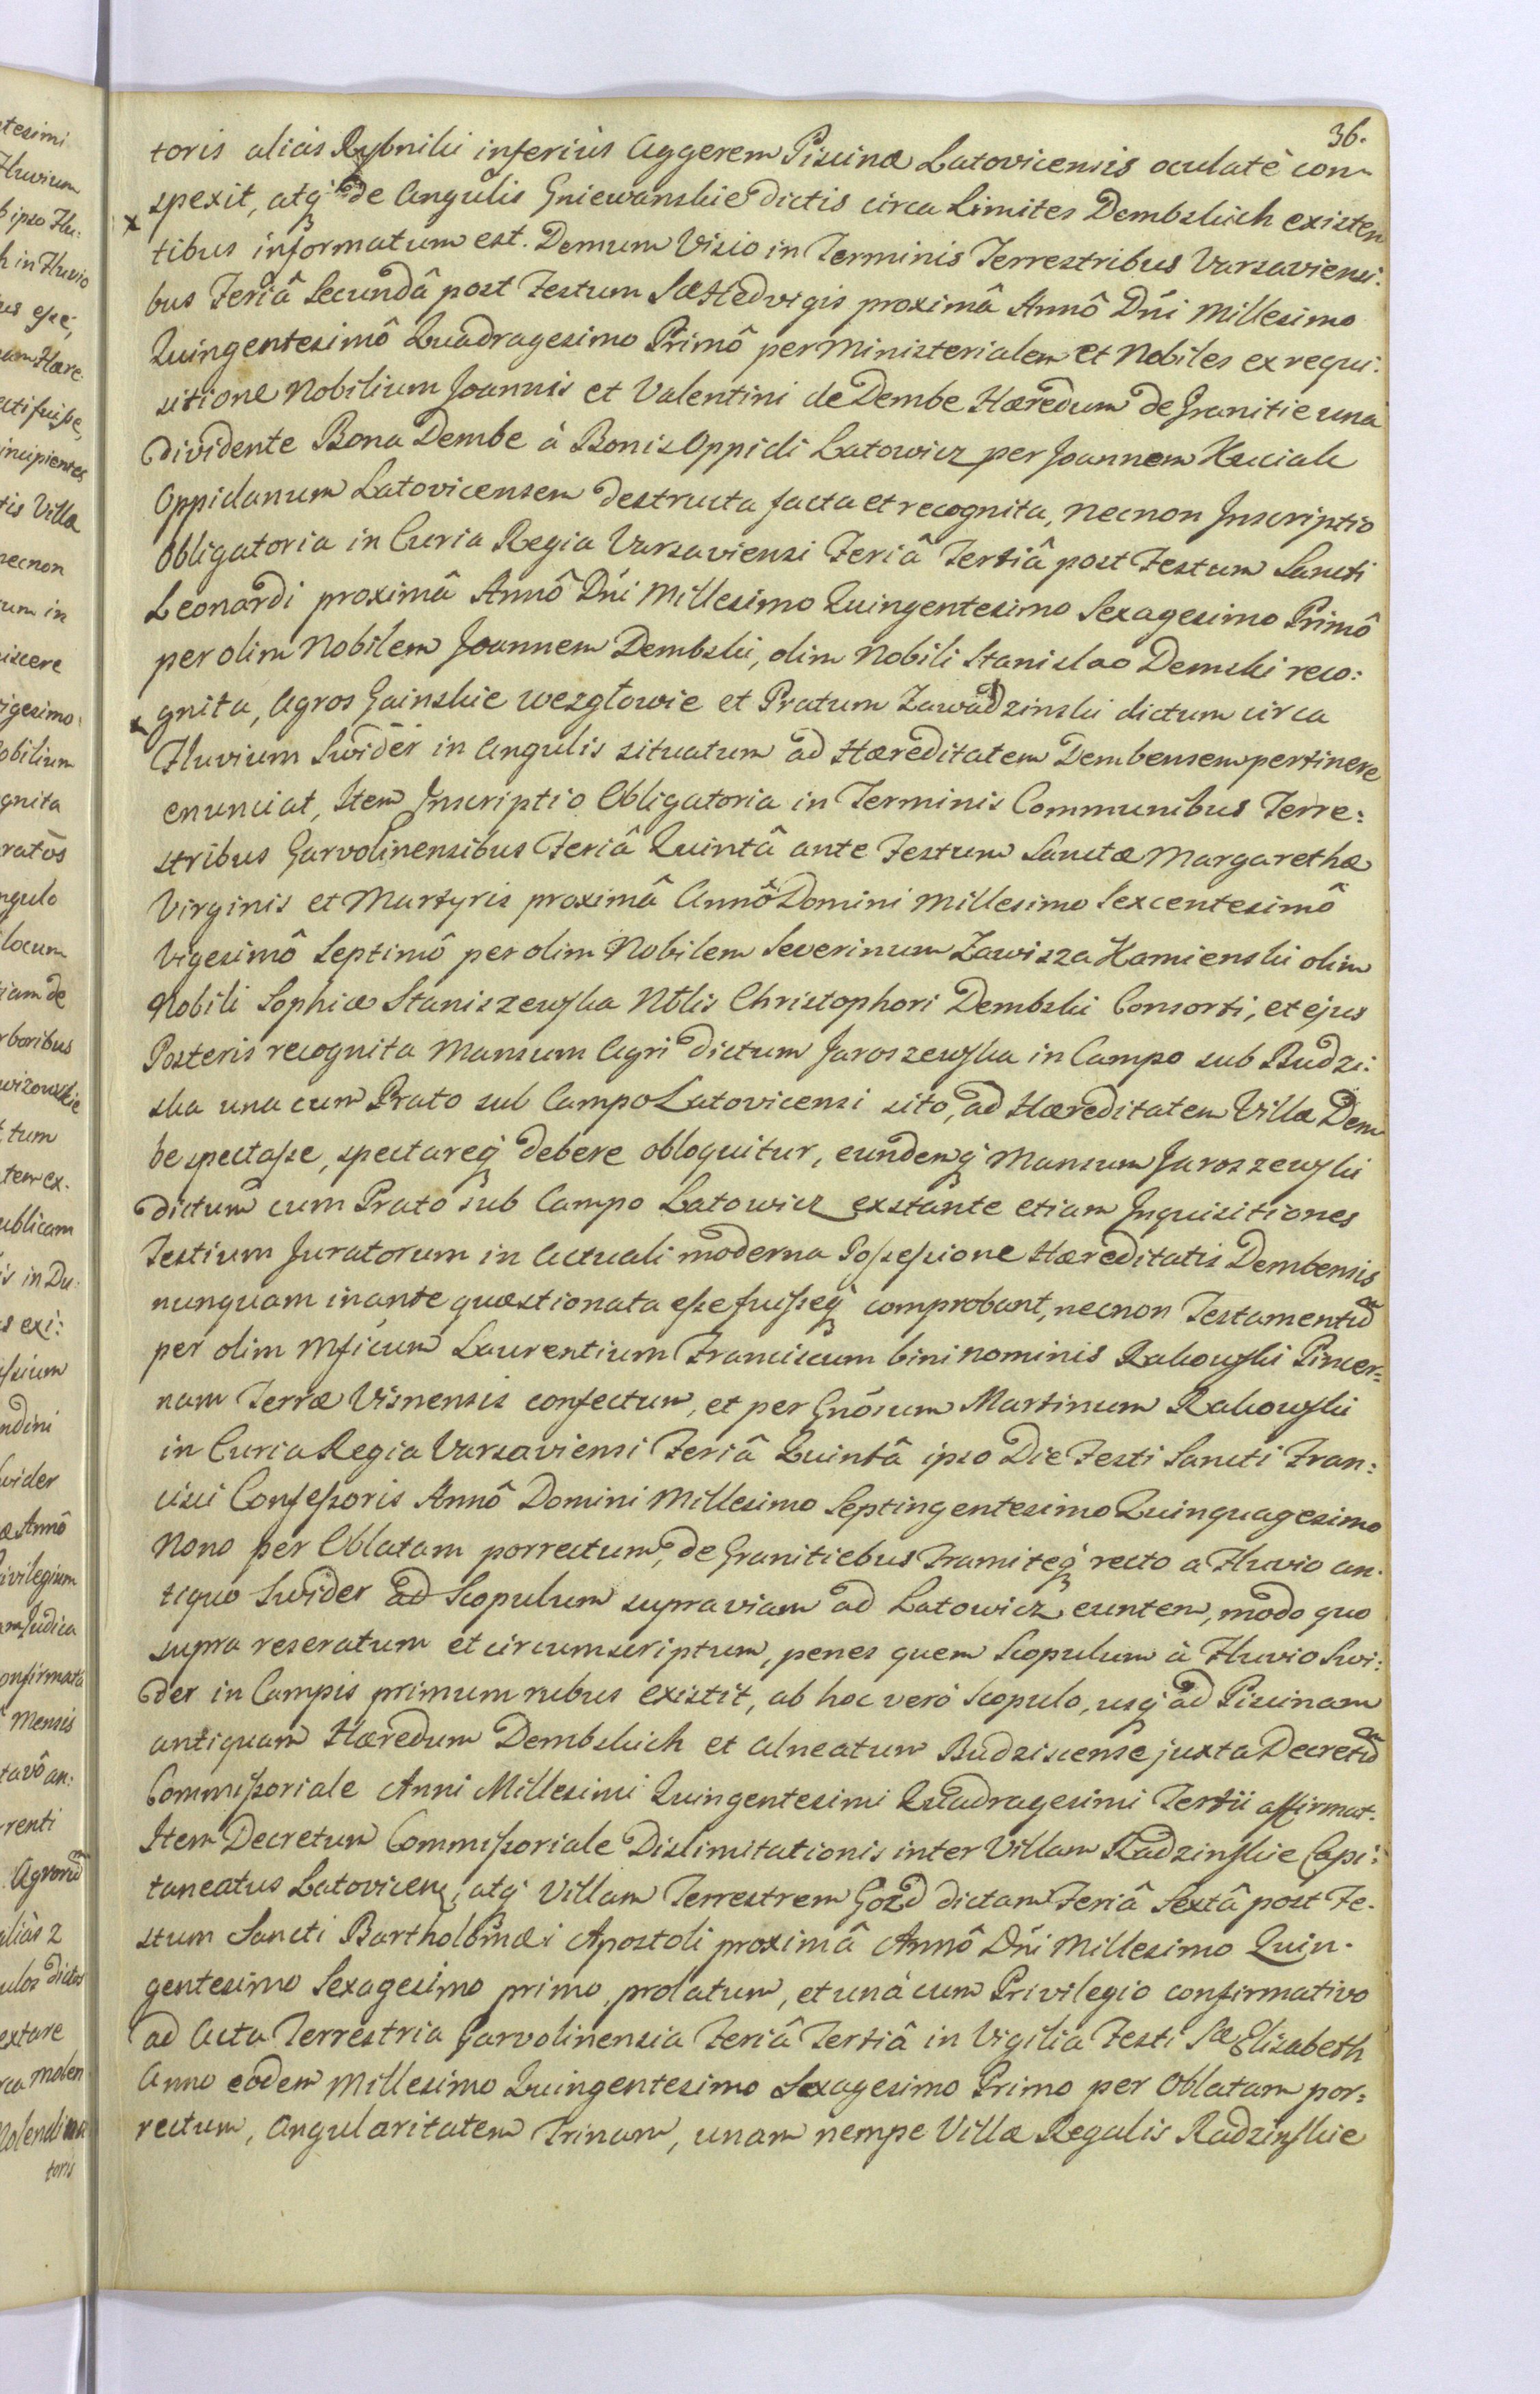 36.
toris alias Rybniki inferius Aggerem Piscinæ Latovicensis oculatè con-
spexit, atq́ de Angulis Gniewanskie dictis circa Limites Dembskich existen
tibus informatum est. Demum Visio in Terminis Terrestribus Varsaviensi:
bus Feriâ Secundâ post Festum Sæ Hedvigis proximâ Annô Dńi Millesimo
Quingentesimô Quadragesimo Primô per Ministerialem et Nobiles ex requi:
sitione Nobilium Joannis et Valentini de Dembe Hæredum de Granitie una
dividente Bona Dembe à Bonis Oppidi Latowicz per Joannem
Oppidanum Latovicensem destructa facta et recognita, necnon Inscriptio
Obligatoria in Curia Regia Varsaviensi Feriâ Tertiâ post Festum Sancti
Leonardi proximâ Annô Dńi Millesimo Quingentesimo Sexagesimo Primô
per olim Nobilem Joannem Dembski, olim Nobili Stanislao Demski reco:
gnita, Agros Gainskie wezgłowie et Pratum Zawadzinski dictum circa
Fluvium Swider in Angulis situatum ad Hæreditatem Dembensem pertinere
enunciat, Item Inscriptio Obligatoria in Terminis Communibus Terre:
stribus Garvolinensibus Feriâ Quintâ ante Festum Sanctæ Margarethæ
Virginis et Martyris proximâ Annô Domini Millesimo Sexcentesimô
Vigesimô Septimô per olim Nobilem Severinum Zawisza Kamienski olim
Nobili Sophiæ Staniszewska Nblis Christophori Dembski Consorti, et ejus
Posteris recognita Mansum Agri dictum Jaroszewska in Campo sub Budzi:
ska una cum Prato sub Campo Latovicensi sito, ad Hæreditatem Villæ Dem
be spectasse, spectareq́ debere obloquitur, eundemq́ Mansum Jaroszewski
dictum cum Prato sub Campo Latowicz exstante etiam Inquisitiones
Testium Juratorum in Actuali moderna Possessione Hæreditatis Dembensis
nunquam inante quæstionata esse fuisseq́ comprobant, necnon Testamentũ
per olim Mficum Laurentium Franciscum bini nominis Rakowski Pincer=
nam Terræ Visnensis confectum, et per Gnósum Martinum Rakowski
in Curia Regia Varsaviensi Feriâ Quintâ ipso Die Festi Sancti Fran:
cisci Confessoris Annô Domini Millesimo Septingentesimo Quinquagesimo
Nono per Oblatam porrectum, de Granitiebus Tramiteq́ recto a Fluvio an-
tiquo Swider ad Scopulum supra viam ad Latowicz euntem, modo quo
supra reseratum et circumscriptum, penes quem Scopulum à Fluvio Swi:
der in Campis primum rubus existit, ab hoc verò Scopulo, usq́ ad Piscinam
antiquam Hæredum Dembskich et Alneatum Budziscense juxta Decretũ
Commissoriale Anni Millesimi Quingentesimi Quadragesimi Tertii affirmat.
Item Decretum Commissoriale Dislimitationis inter Villam Radzinskie Capi:
taneatus Latovicen, atq́ Villam Terrestrem Gozd dictam Feriâ Sextâ post Fe-
stum Sancti Bartholomæi Apostoli proximâ Annô Dńi Millesimo Quin-
gentesimo Sexagesimo primo, prolatum, et unà cum Privilegio confirmativo
ad Acta Terrestria Garvolinensia Feriâ Tertiâ in Vigilia Festi Sæ Elisabeth
Anno eodem Millesimo Quingentesimo Sexagesimo Primo per Oblatam por=
rectum, Angularitatem Trinam, unam nempe Villæ Regalis Radzinskie